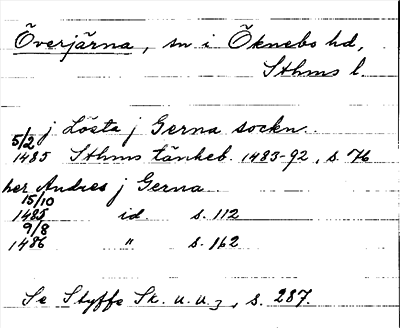 Överjärna, sn i Öknebo hd,
Sthms l.
j Lösta j Gerna sockn.
5/2
1485 Sthms tänkeb. 1483-92, s. 76
her Andres j Gerna
15/10
1485 id s. 112
9/8
1486 " s. 162
Se Styffe Sk. u. u. 3, s. 287.